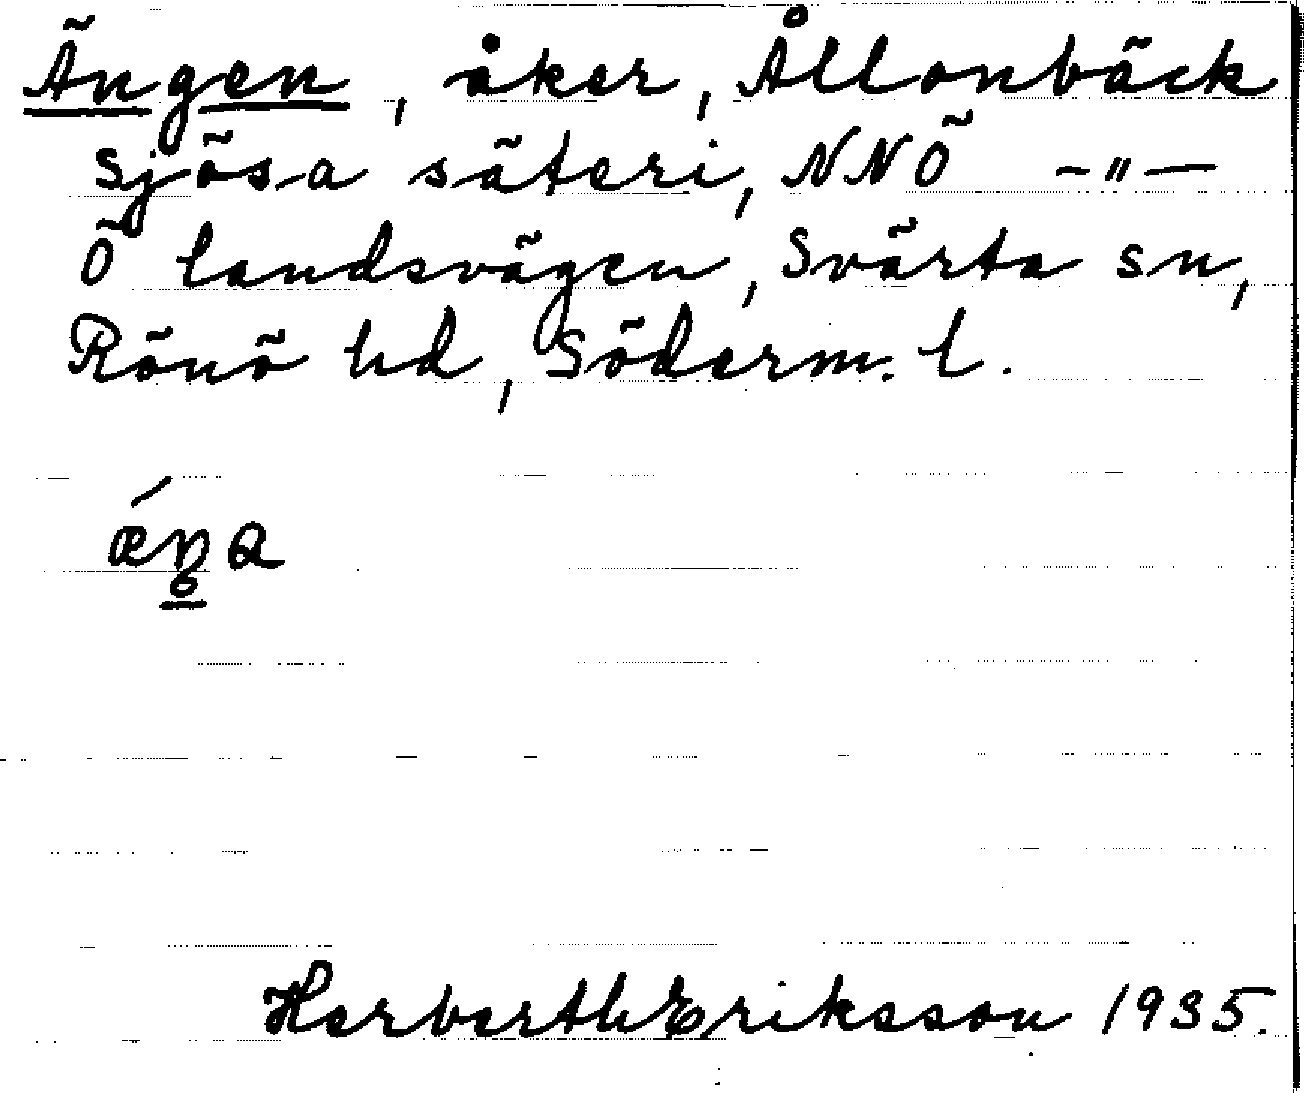 Ängen, åker, Ållonbäck
Sjösa säteri, NNÖ —"—
Ö landsvägen, Svärta sn,
Rönö hd, Söderm. l.
Herberth Eriksson 1935.